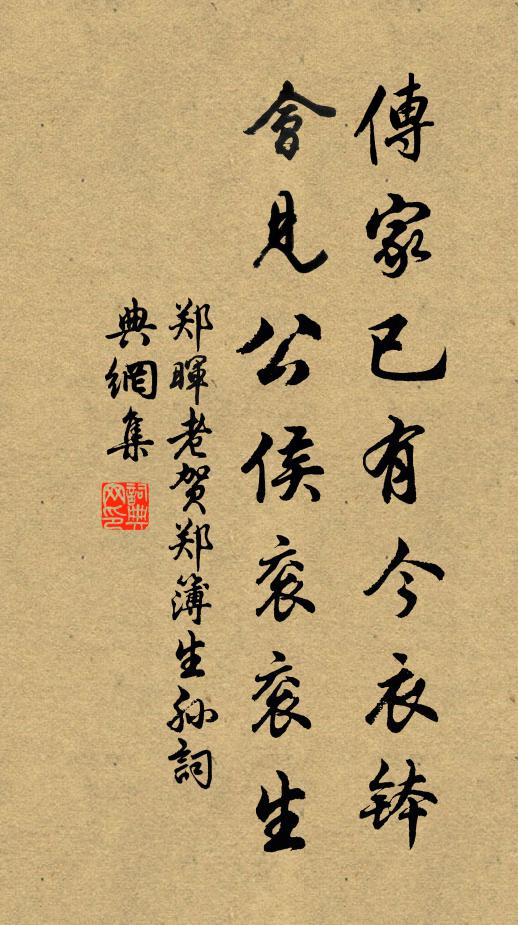 傳家已有今衣鉢
會見公侯衮衮生
郑暉老贺郑簿生孙詞
典網集
詞典网印